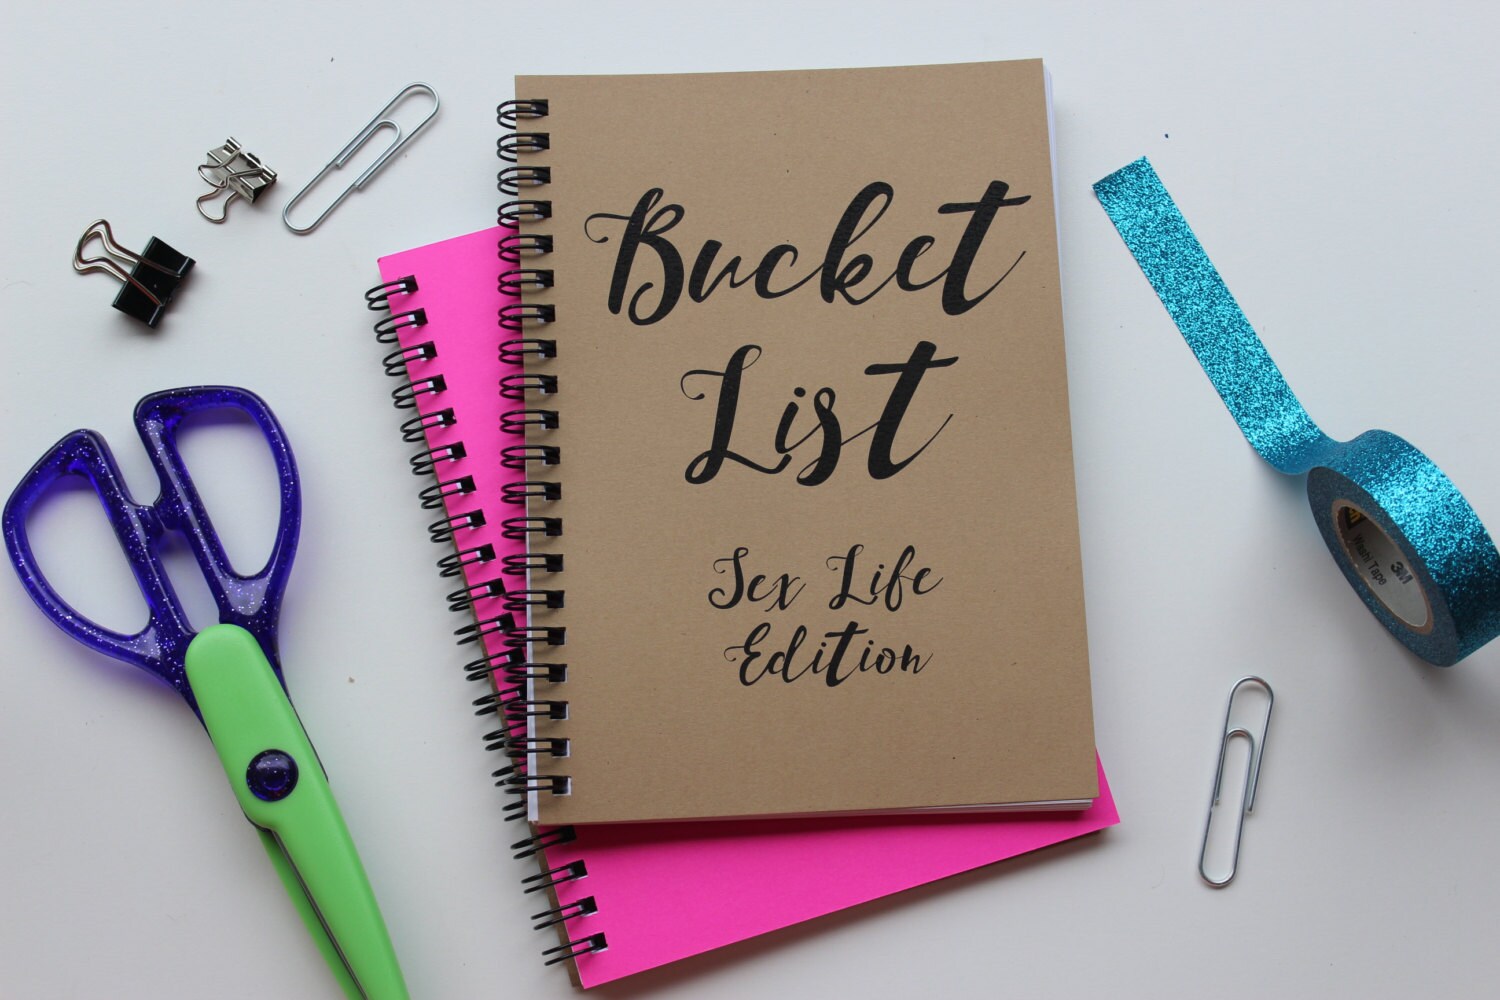 Bucket
List
Sex Life
Edition
3M
Washi Tape